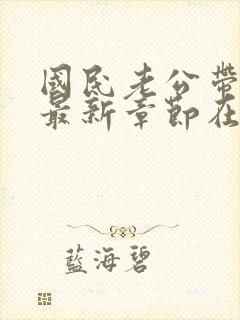 國民老公帶
最新章節在
藍海碧